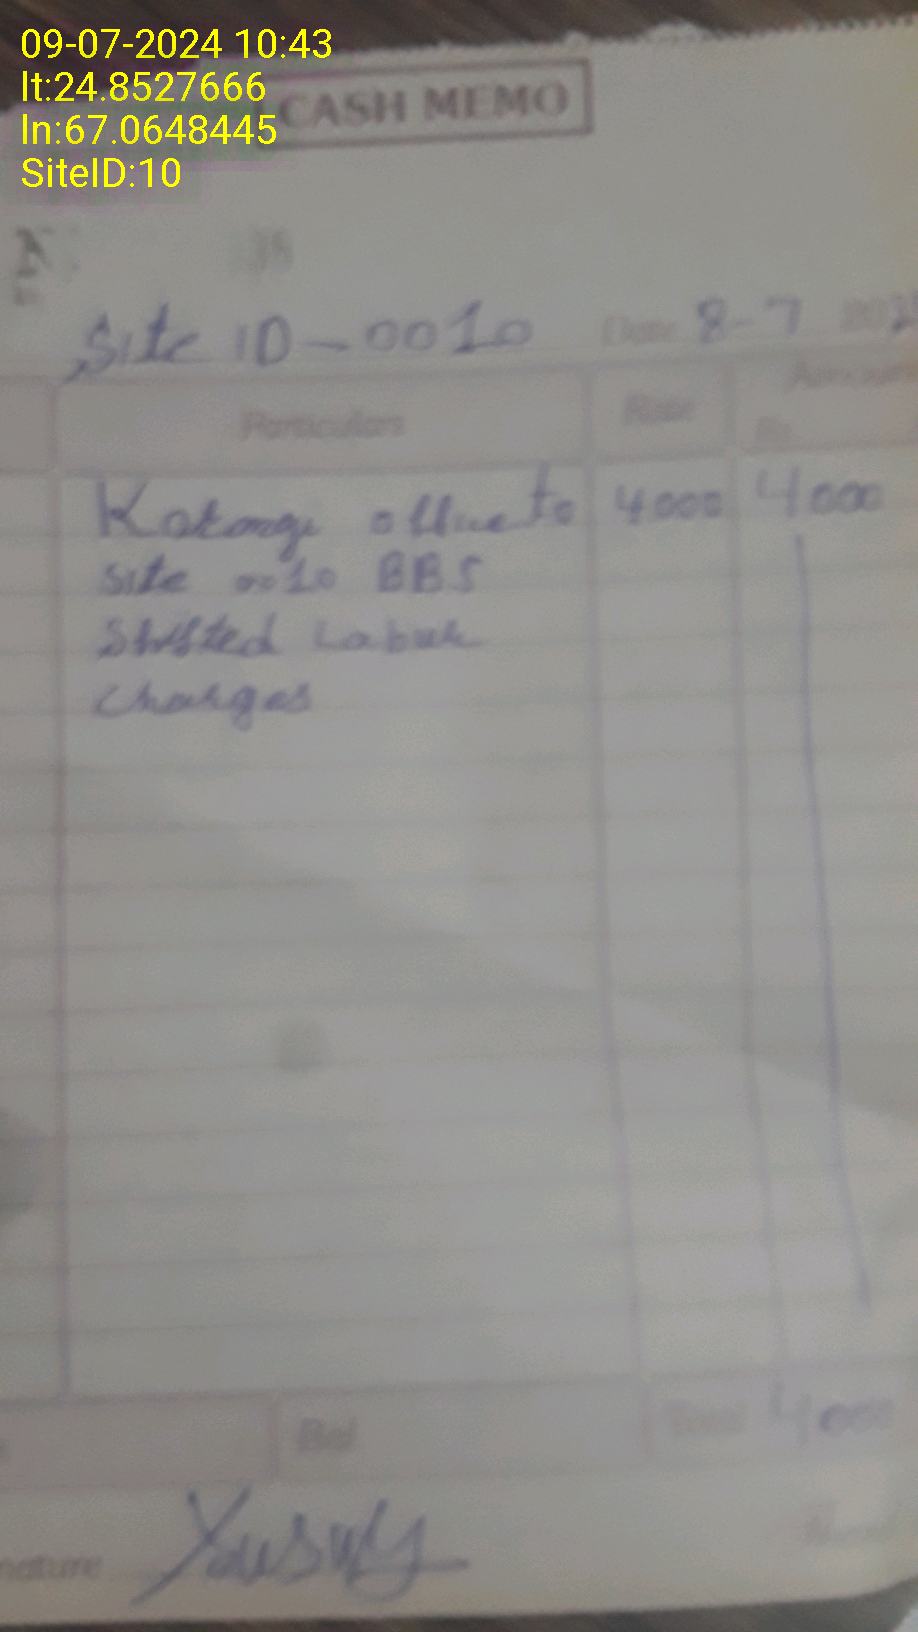 09-07-2024 10:43
lt:24.8527666
ln:67.0648445
SiteID:10
CASH MEMO
Site ID-0010
Date 8-7 202
Particulars Rate Amount
Rs.
to 4000 4000
Site 0010 BBS
Shifted Labour
Charges
Bal Total 4000
nature Yousuf